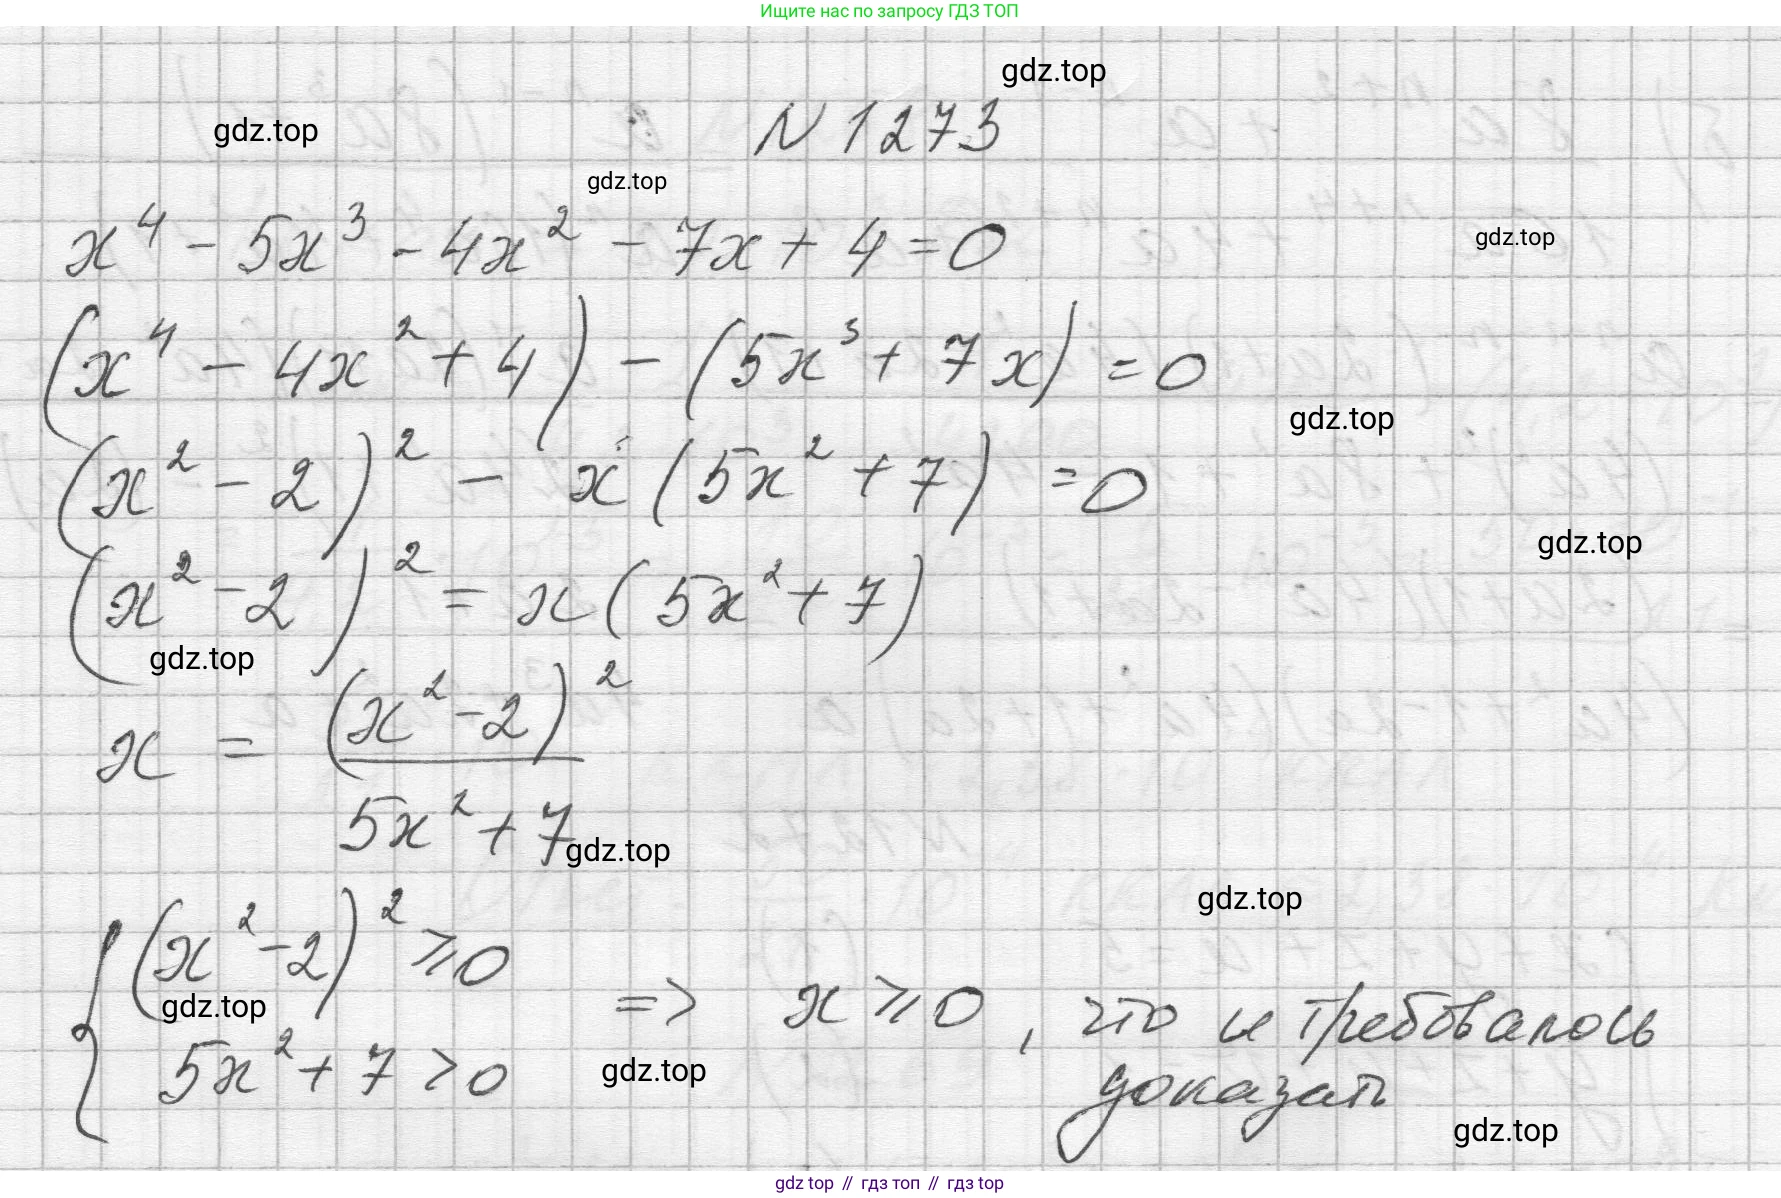 Ищите нас по запросу ГДЗ ТОП
gdz.top
gdz.top
N 1273
gdz.top
x⁴ - 5x³ - 4x² - 7x + 4 = 0
gdz.top
(x⁴ - 4x² + 4) - (5x³ + 7x) = 0
gdz.top
(x² - 2)² - x (5x² + 7) = 0
gdz.top
(x² - 2)² = x (5x² + 7)
gdz.top
x = (x² - 2)² / 5x² + 7
gdz.top
gdz.top
{ (x² - 2)² ⩾ 0
gdz.top
5x² + 7 > 0
=> x ⩾ 0, что и требовалось
доказать
gdz.top
gdz.top
gdz top // гдз топ // гдз top